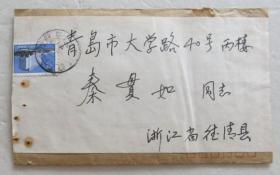 青岛市大学路40号丙楼
秦贯如 同志
浙江省德清县